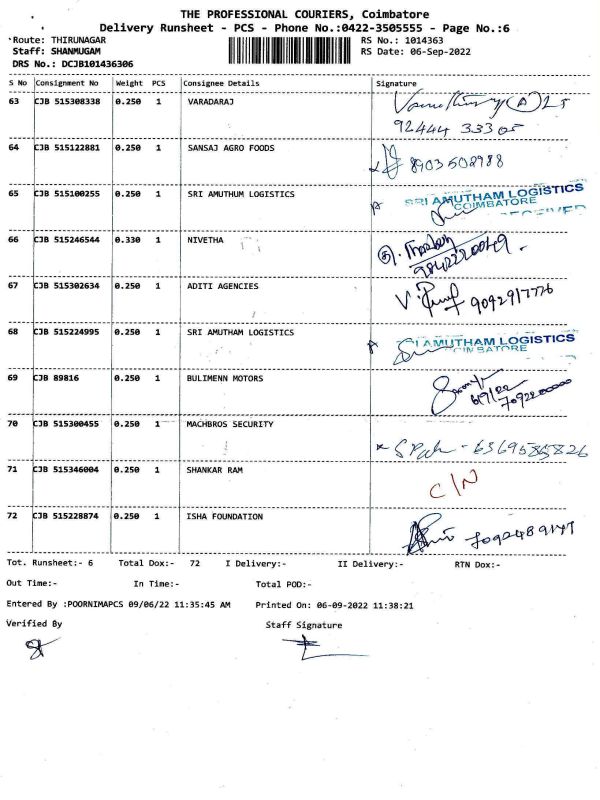 THE PROFESSIONAL COURIERS, Coimbatore
Delivery Runsheet - PCS - Phone No.:0422-3505555 - Page No.:6
Route: THIRUNAGAR RS No.: 1014363
Staff: SHANMUGAM RS Date: 06-Sep-2022
DRS No.: DCJB101436306
S No Consignment No Weight PCS Consignee Details Signature
63 CJB 515308338 0.250 1 VARADARAJ
92444 33305
64 CJB 515122881 0.250 1 SANSAJ AGRO FOODS 8903502988
65 CJB 515100255 0.250 1 SRI AMUTHUM LOGISTICS SRI AMUTHAM LOGISTICS
COIMBATORE
RECEIVED
66 CJB 515246544 0.330 1 NIVETHA
9842220049
67 CJB 515302634 0.250 1 ADITI AGENCIES 9092917776
68 CJB 515224995 0.250 1 SRI AMUTHUM LOGISTICS AMUTHAM LOGISTICS
69 CJB 89816 0.250 1 BULIMENN MOTORS
6/9/22
70 CJB 515300455 0.250 1 MACHBROS SECURITY
71 CJB 515346004 0.250 1 SHANKAR RAM C/N
72 CJB 515228874 0.250 1 ISHA FOUNDATION
Tot. Runsheet:- 6 Total Dox:- 72 I Delivery:- II Delivery:- RTN Dox:-
Out Time:- In Time:- Total POD:-
Entered By :POORNIMAPCS 09/06/22 11:35:45 AM Printed On: 06-09-2022 11:38:21
Verified By Staff Signature